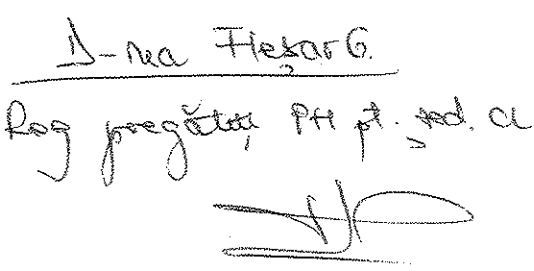 D-na Fleșar G.
Rog pregătiți PH pt. șed. CL